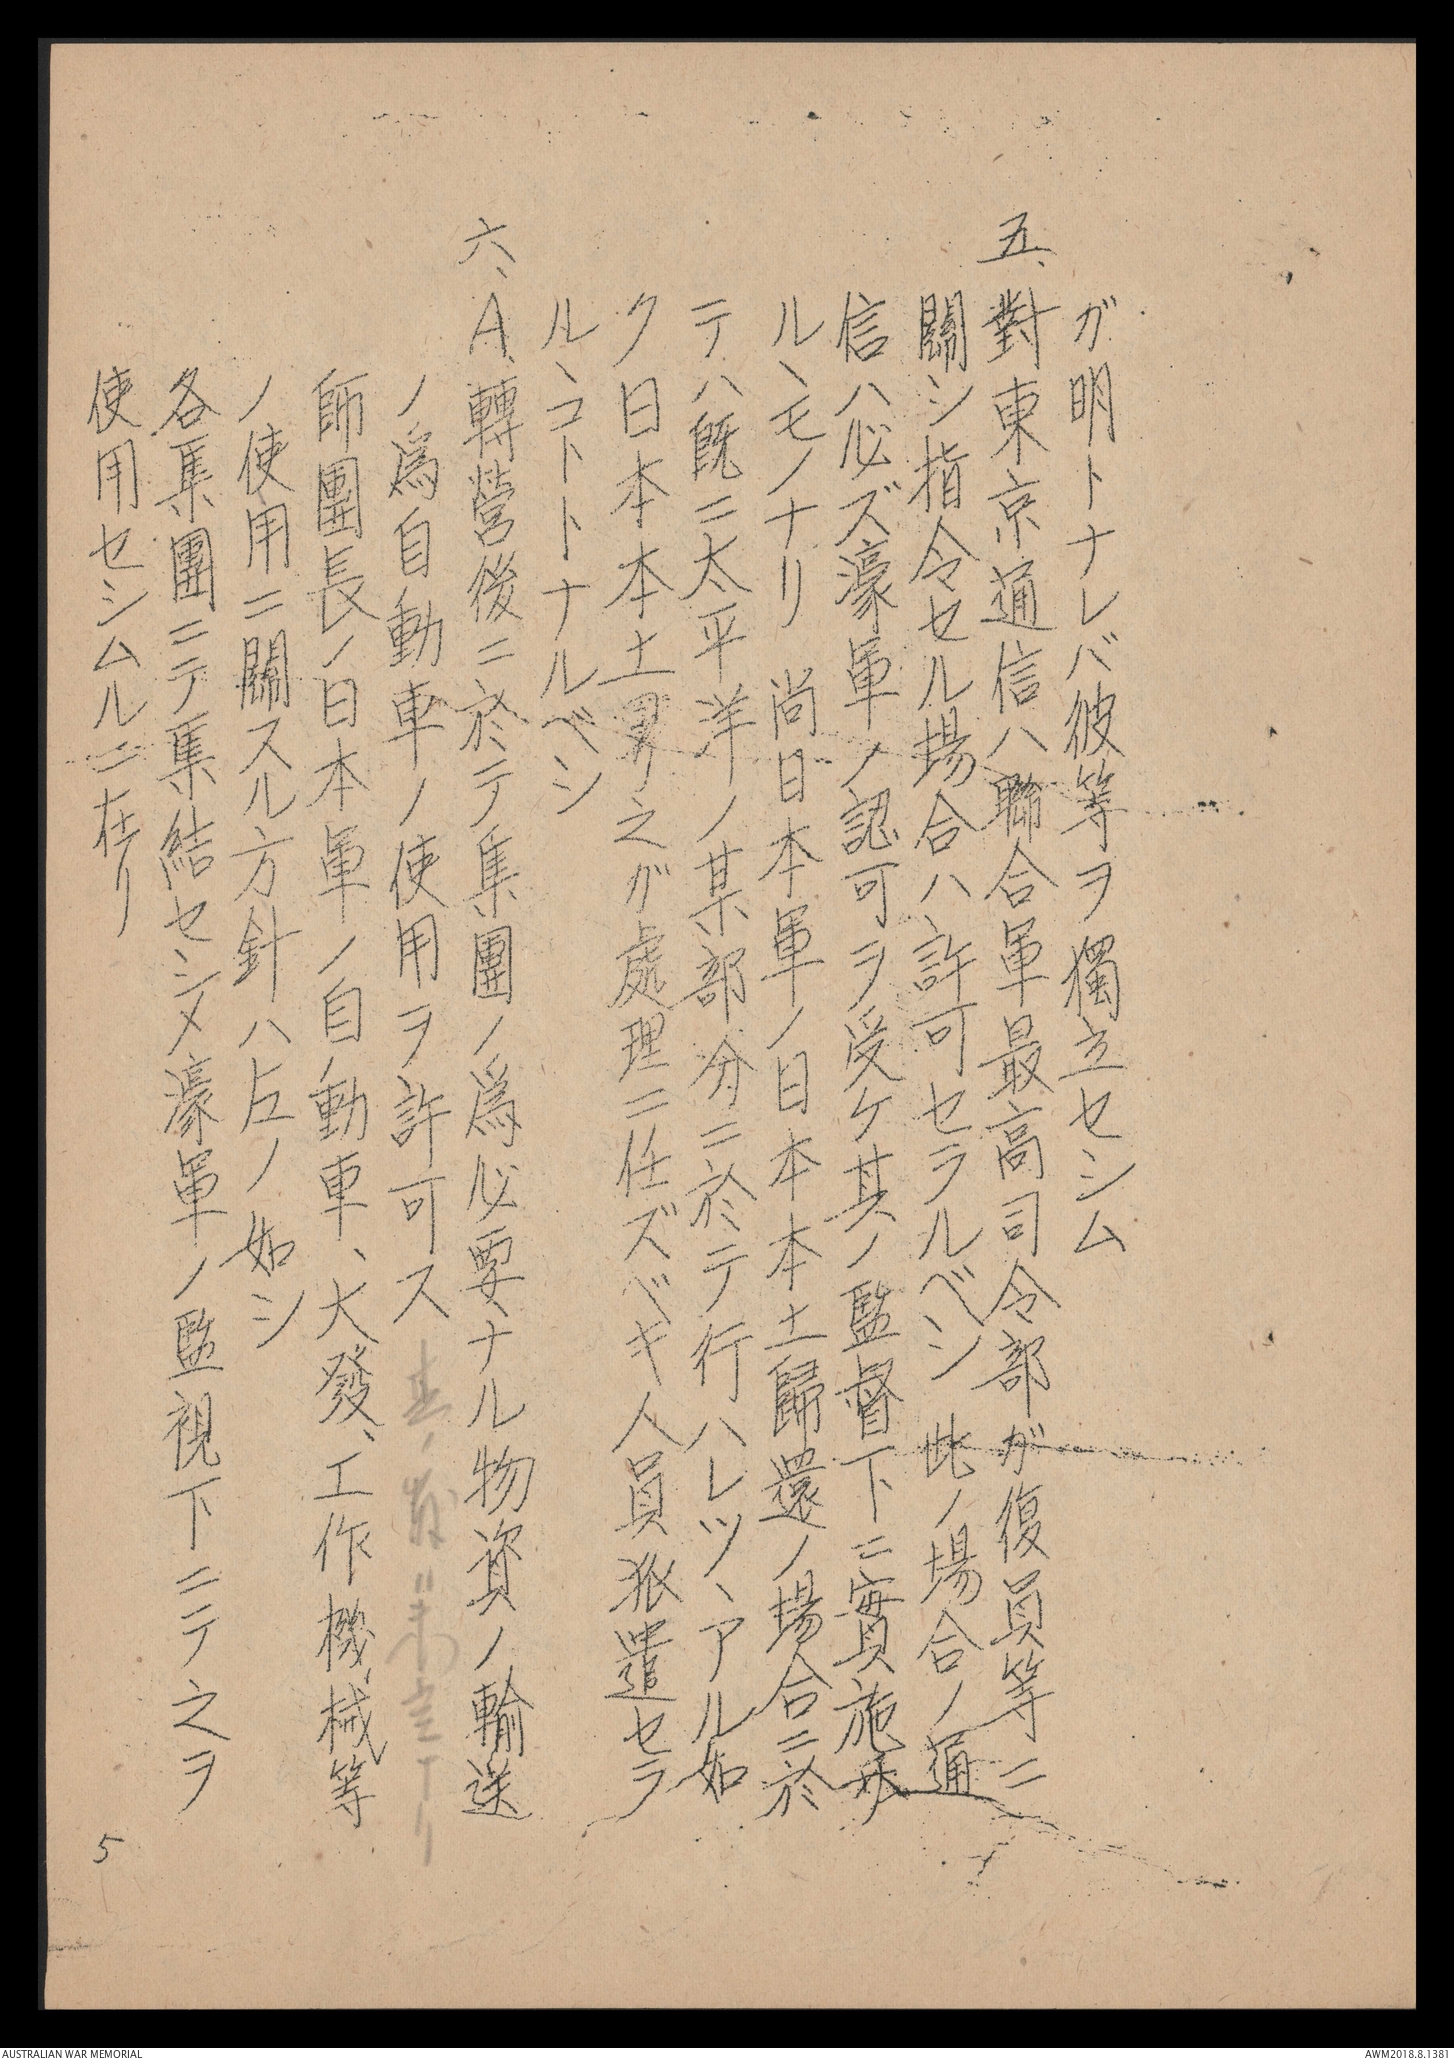 ガ明トナレバ彼等ヲ獨立セシム
五、對東京通信ハ聯合軍最高司令部ガ復員等ニ
關シ指令セル場合ハ許可セラルベシ 此ノ場合ノ通
信ハ必ズ濠軍ノ認可ヲ受ケ其ノ監督下ニ實施サ
ルヽモノナリ 尚日本軍ノ日本本土歸還ノ場合ニ於
テハ既ニ太平洋ノ某部分ニ於テ行ハレツヽアル如
ク日本本土ヨリ之ガ處理ニ任ズベキ人員派遣セラ
ルヽコトトナルベシ
六、A、轉營後ニ於テ集團ノ爲必要ナル物資ノ輸送
ノ爲自動車ノ使用ヲ許可ス
師團長ノ日本軍ノ自動車、大發、工作機械等
ノ使用ニ關スル方針ハ左ノ如シ
各集團ニテ集結セシメ濠軍ノ監視下ニテ之ヲ
使用セシムルニ在リ
5
AUSTRALIAN WAR MEMORIAL
AWM2018.8.1381